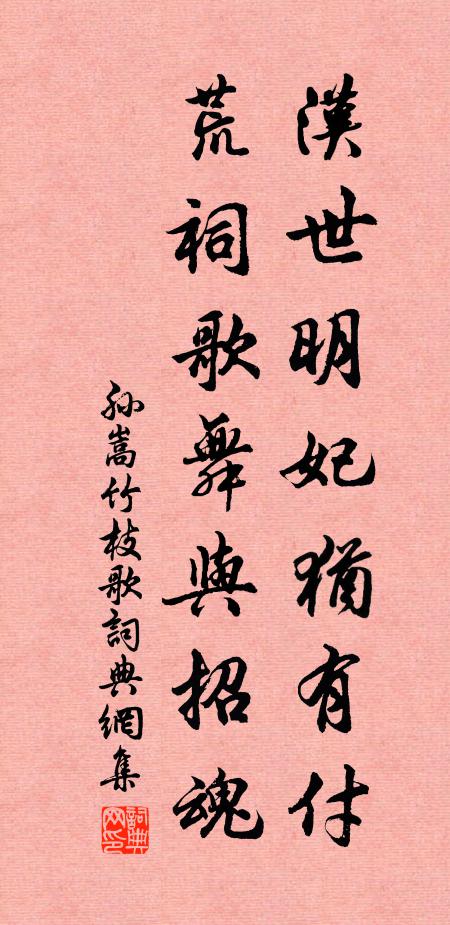 漢世明妃猶有村
荒祠歌舞與招魂
孫嵩竹枝歌詞典網集
詞典网印